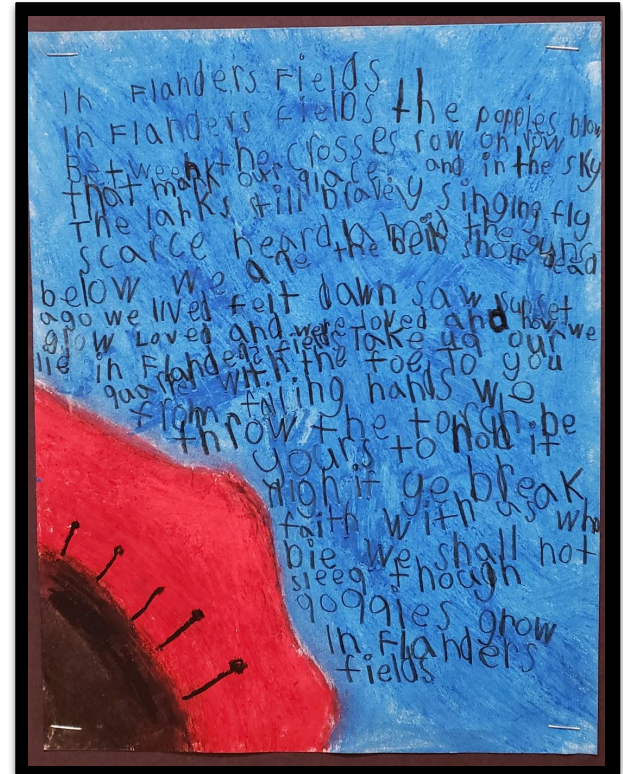 In Flanders Fields
In Flanders fields the popples blow
Between the crosses row on row
that mark our place and in the sky
The larks still bravely singing fly
scarce heard the guns
below We are the dead short
ago we lived felt dawn saw sunset
glow Loved and were loved and now we
lie in Flanders fields Take up our
quarrel with the foe To you
from failing hands we
throw the torch be
yours to hold it
high if ye break
faith with us who
die We shall not
sleep though
poppies grow
In Flanders
fields